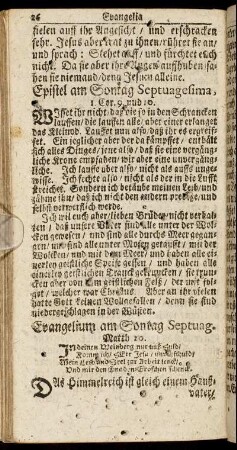 26 Evangelia
fielen auff ihr Angesicht / und erschracken
sehr. Jesus aber trat zu ihnen / rühret sie an /
und sprach: Stehet auff / und fürchtet euch
nich. Da sie aber ihre Augen auffhuben / sa-
hen sie niemand / denn Jesum alleine.
Epistel am Sontag Septuagesima,
1. Cor. 9. und 10.
WIsset ihr nicht / daß die so in den Schrancken
lauffen / die lauffen alle / aber einer erlanget
das Kleinod. Lauffet nun also / daß ihr es ergreif-
fet. Ein jeglicher aber der da kämpffet / enthält
sich alles Dinges / jene also / daß sie eine vergäng-
liche Krone empfahen / wir aber eine unvergäng-
liche. Ich lauffe aber also / nicht als auffs unge-
wisse. Ich fechte also / nicht als der in die Lufft
streichet. Sondern ich betäube meinen Leib / und
zähme ihn / daß ich nicht den andern predige / und
selbst verwerflich werde.
Ich wil euch aber / lieben Brüder / nicht verhal-
ten / daß unsere Väter sind alle unter der Wol-
cken gewesen / und sind alle durchs Meer gegan-
gen / und sind alle unter Mosen getaufft / mit der
Wolcken / und mit dem Meer / und haben alle ei-
nerley geistliche Speise gessen / und haben alle
einerley geistlichen Tranck getruncken / sie trun-
cken aber von dem geistlichen Felß / der mit fol-
get / welcher war Christus. Aber an ihr vielen
hatte Gott keinen Wolgefallen / denn sie sind
niedergeschlagen in der Wüsten.
Evangelium am Sontag Septuag.
Matth 20.
In deinen Weinberg
Mein Gott und
Und mit den Gnaden
DAs Himmelreich ist gleich einem Hauß-
vater /